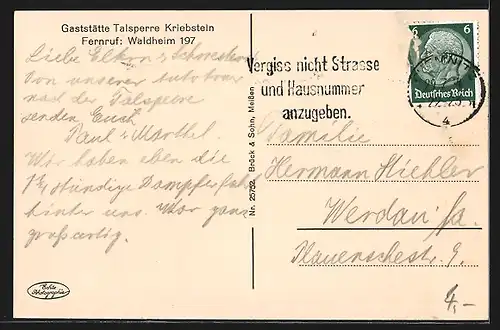 Gaststätte Talsperre Kriebstein
Fernruf: Waldheim 197
Liebe Eltern u. Schwestern
Von unserer Autotour
nach der Talsperre
senden Euch
Paul u. Marthel.
Wir haben eben die
1½ stündige Dampferfahrt
hinter uns. War ganz
großartig.
Echte Photographie
Nr. 25722 Brück & Sohn, Meißen
Vergiss nicht Strasse
und Hausnummer
anzugeben.
6 6
Deutsches Reich
4
Familie
Hermann
Werdau Sa.
Plauenschestr. 9.
4,-